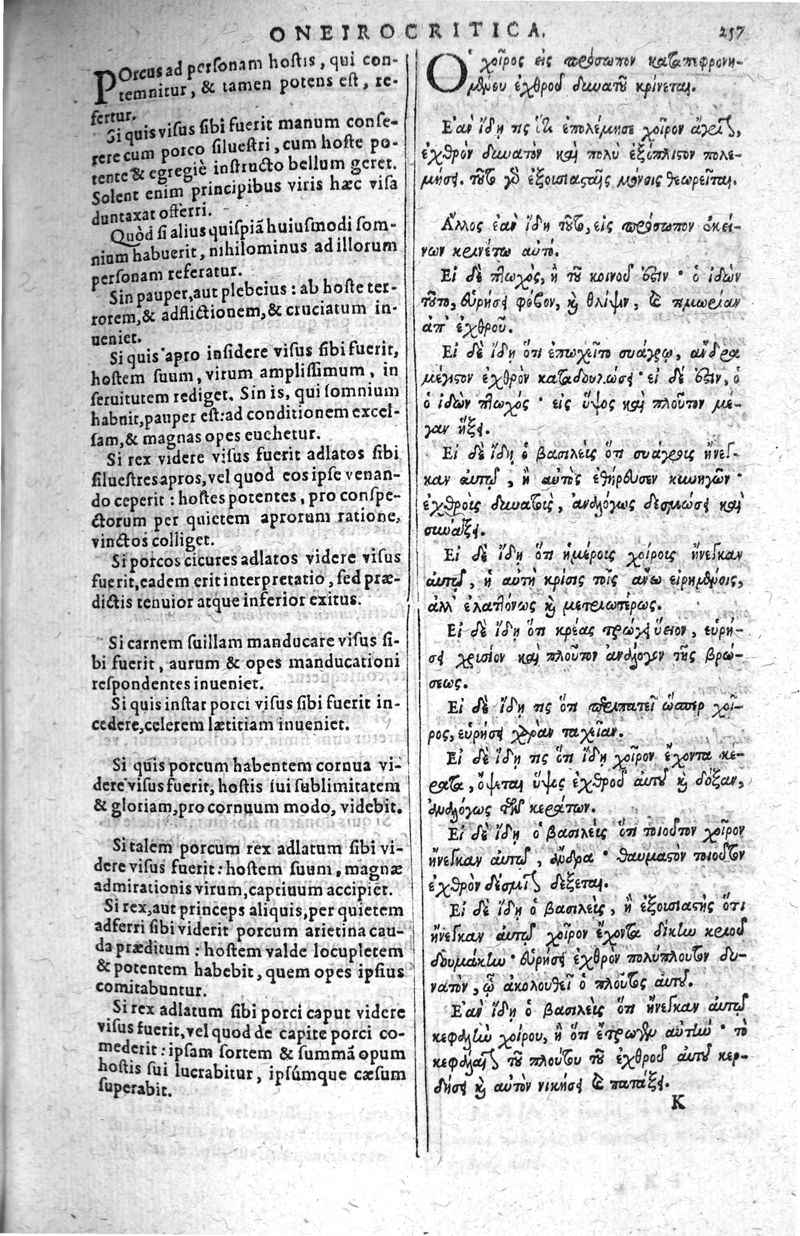 ONEIROCRITICA.
257
POrcus ad personam hostis, qui con-
temnitur, & tamen potens est, re-
fertur.
Si quis visus sibi fuerit manum conse-
rere cum porco siluestri, cum hoste po-
tente & egregiè instructo bellum geret.
Solent enim principibus viris hæc visa
duntaxat offerri.
Quòd si alius quispiã huiusmodi som-
nium habuerit, nihilominus ad illorum
personam referatur.
Sin pauper, aut plebeius: ab hoste ter-
rorem, & adflictionem, & cruciatum in-
ueniet.
Si quis apro insidere visus sibi fuerit,
hostem suum, virum amplissimum, in
seruitutem rediget. Sin is, qui somnium
habuit, pauper est: ad conditionem excel-
sam, & magnas opes euehetur.
Si rex videre visus fuerit adlatos sibi
siluestres apros, vel quod eos ipse venan-
do ceperit: hostes potentes, pro conspe-
ctorum per quietem aprorum ratione,
vinctos colliget.
Si porcos cicures adlatos videre visus
fuerit, eadem erit interpretatio, sed præ-
dictis tenuior atque inferior exitus.
Si carnem suillam manducare visus si-
bi fuerit, aurum & opes manducationi
respondentes inueniet.
Si quis instar porci visus sibi fuerit in-
cedere, celerem lætitiam inueniet.
Si quis porcum habentem cornua vi-
dere visus fuerit, hostis sui sublimitatem
& gloriam, pro cornuum modo, videbit.
Si talem porcum rex adlatum sibi vi-
dere visus fuerit: hostem suum, magnæ
admirationis virum, captiuum accipiet.
Si rex, aut princeps aliquis, per quietem
adferri sibi viderit porcum arietina cau-
da præditum: hostem valde locupletem
& potentem habebit, quem opes ipsius
comitabuntur.
Si rex adlatum sibi porci caput videre
visus fuerit, vel quod de capite porci co-
mederit: ipsam sortem & summã opum
hostis sui lucrabitur, ipsúmque cæsum
superabit.
Ὁ χοῖρος εἰς πρόσωπον καταπεφρονη-
μένου ἐχθροῦ δυνατοῦ κρίνεται.
Ἐὰν ἴδῃ τις ὅτι ἐπολέμησε χοῖρον ἄγριον,
ἐχθρὸν δυνατὸν καὶ πολὺ ἐξόπλιστον πολε-
μήσει. τοῦτο γὸ ἐξουσιασταῖς μόνοις θεωρεῖται.
Ἄλλος ἐὰν ἴδῃ τοῦτο, εἰς πρόσωπον ἐκεί-
νων κρινέτω αὐτό.
Εἰ δὲ πτωχὸς, ἢ τοῦ κοινοῦ ἐστιν · ὁ ἰδὼν
τοῦτο, εὑρήσει φόβον, καὶ θλίψιν, καὶ τιμωρίαν
ἀπ' ἐχθροῦ.
Εἰ δὲ ἴδῃ ὅτι ἐπωχεῖτο συάγρῳ, ἄνδρα
μέγιστον ἐχθρὸν καταδουλώσει · εἰ δέ ἐστιν, ὁ
ὁ ἰδὼν πτωχός · εἰς ὕψος καὶ πλοῦτον μέ-
γαν ἥξει.
Εἰ δὲ ἴδῃ ὁ βασιλεὺς ὅτι συάγρους ἤνεγ-
καν αὐτῷ, ἢ αὐτὸς ἐθήρευσεν κυνηγῶν ·
ἐχθροὺς δυνατοὺς, ἀναλόγως δεσμώσει καὶ
συνάξει.
Εἰ δὲ ἴδῃ ὅτι ἡμέρους χοίρους ἤνεγκαν
αὐτῷ, ἡ αὐτὴ κρίσις τοῖς ἄνω εἰρημένοις,
ἀλλ' ἐλαττόνως καὶ μετριωτέρως.
Εἰ δὲ ἴδῃ ὅτι κρέας τρώγει ὕειον, εὑρή-
σει χρυσίον καὶ πλοῦτον ἀνάλογον τῆς βρώ-
σεως.
Εἰ δὲ ἴδῃ τις ὅτι περιπατεῖ ὥσπερ χοῖ-
ρος, εὑρήσει χαρὰν ταχεῖαν.
Εἰ δὲ ἴδῃ τις ὅτι ἴδῃ χοῖρον ἔχοντα κέ-
ρατα, ὄψεται ὕψος ἐχθροῦ αὐτοῦ καὶ δόξαν,
ἀναλόγως τῶν κεράτων.
Εἰ δὲ ἴδῃ ὁ βασιλεὺς ὅτι τοιοῦτον χοῖρον
ἤνεγκαν αὐτῷ, ἄνδρα · θαυμαστὸν τοιοῦτον
ἐχθρὸν δέσμιον δέξεται.
Εἰ δὲ ἴδῃ ὁ βασιλεὺς, ἢ ἐξουσιαστὴς ὅτι
ἤνεγκαν αὐτῷ χοῖρον ἔχοντα δίκην κριοῦ
· εὑρήσει ἐχθρὸν πολύπλουτον δυ-
νατὸν, ᾧ ἀκολουθεῖ ὁ πλοῦτος αὐτοῦ.
Ἐὰν ἴδῃ ὁ βασιλεὺς ὅτι ἤνεγκαν αὐτῷ
κεφαλὴν χοίρου, ἢ ὅτι ἔτρωγεν αὐτὴν · τὸ
κεφάλαιον τοῦ πλούτου τοῦ ἐχθροῦ αὐτοῦ κερ-
δήσει καὶ αὐτὸν νικήσει καὶ πατάξει.
K